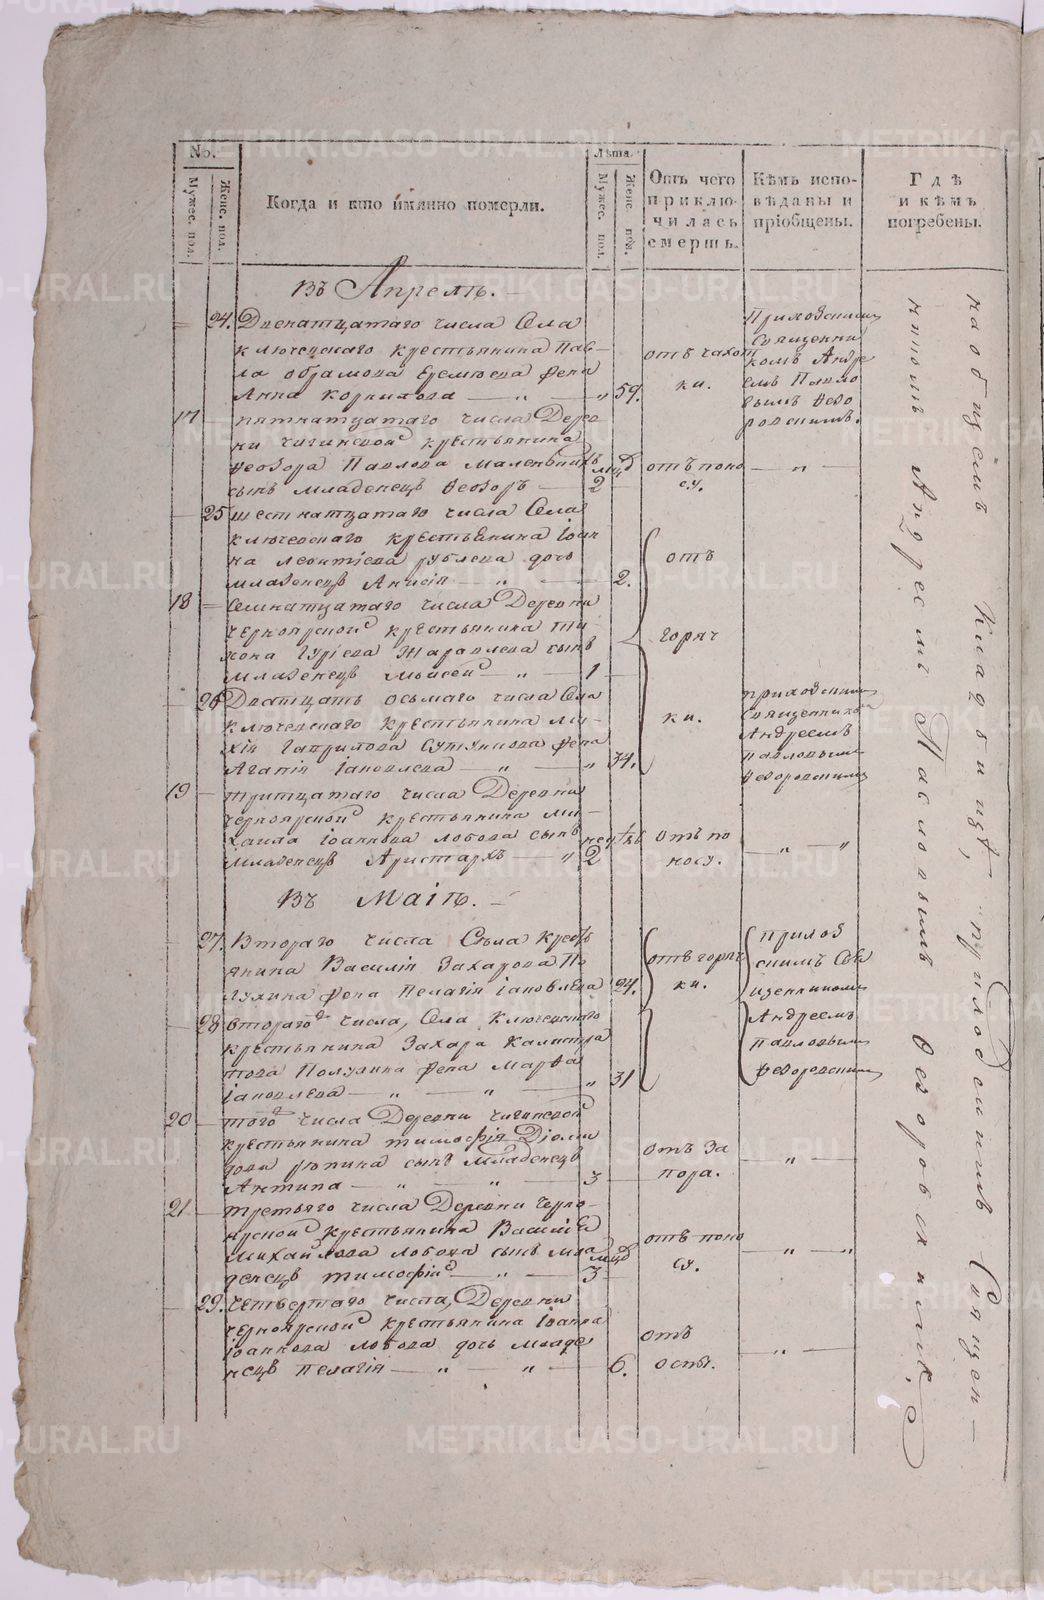 №.
Мужес. пол.
Женс. пол.
Когда и кто имянно померли.
Лѣта
Мужес. пол.
Женс. пол.
Отъ чего
приклю-
чилась
смерть.
Кѣмъ испо-
вѣданы и
пріобщены.
Гдѣ
и кѣмъ
погребены.
Въ Апрелѣ.
24. Двенатцатаго числа Села
ключевскаго крестьянина Пав-
ла Абрамова Еремѣева жена
Анна Корнилова — „ — „ 59.
отъ чахот
ки.
Приходскимъ
Священни
комъ Андре
емъ Павло
вымъ Ѳедо
ровскимъ.
17 — пятнатцатаго числа Дерев
ни чигинской крестьянина
Ѳеодора Павлова Маленькихъ
сынъ младенецъ Ѳеодоръ — мцд 2
отъ поно
су.
— „ —
25 шестнатцатаго числа Села
ключевскаго крестьянина Іоан
на Леонтіева Рублева дочь
младенецъ Анисія — „ — 2.
отъ
горяч
ки.
18 — Семнатцатаго числа Деревни
черноярской крестьянина Ти
хона Гуріева Журавлева сынъ
младенецъ Моисей — „ — 1
26 Дватцать осьмаго числа Села
ключевскаго крестьянина Ми-
хія Гаврилова жена
Агапія Іаковлева — „ — „ 34.
приходскимъ
Священникомъ
Андреемъ
Павловымъ
Ѳедоровскимъ
19 — тритцатаго числа Деревни
черноярской крестьянина Ми-
хаила Іоаннова Лобова сынъ
младенецъ Аристархъ — „ 2
отъ по
носу.
— „ — „
Въ Маіѣ.
27. Втораго числа Села крес
янина Василія Захарова По
лухина жена Пелагія Іаковлева 24.
отъ горяч
ки.
приход
скимъ Свя
щенникомъ
Андреемъ
Павловымъ
Ѳедоровскимъ
28 втораго числа, Села Ключевскаго
крестьянина Захара Калистра
това Полухина жена Марѳа
Іаковлева — „ — „ — „ 31
20 — того числа Деревни чигинской
крестьянина тимофѣя Діоми
дова Рюпина сынъ младенецъ
Антипа — „ — „ — 3
отъ за
пора.
— „ —
21 — третьяго числа Деревни черно-
ярской крестьянина Василія
Михайлова Лобова сынъ мла
денецъ тимофѣй — „ — мцд 3
отъ поно
су.
„ — „
29. четвертаго числа, Деревни
черноярской крестьянина Іоанна
Іоаннова Лобова дочь младе
нецъ Пелагія — „ — „ — 6.
отъ
оспы.
— „ —
на общемъ Кладбищѣ, приходскимъ Священ-
никомъ Андреемъ Павловымъ Ѳедоровскимъ.